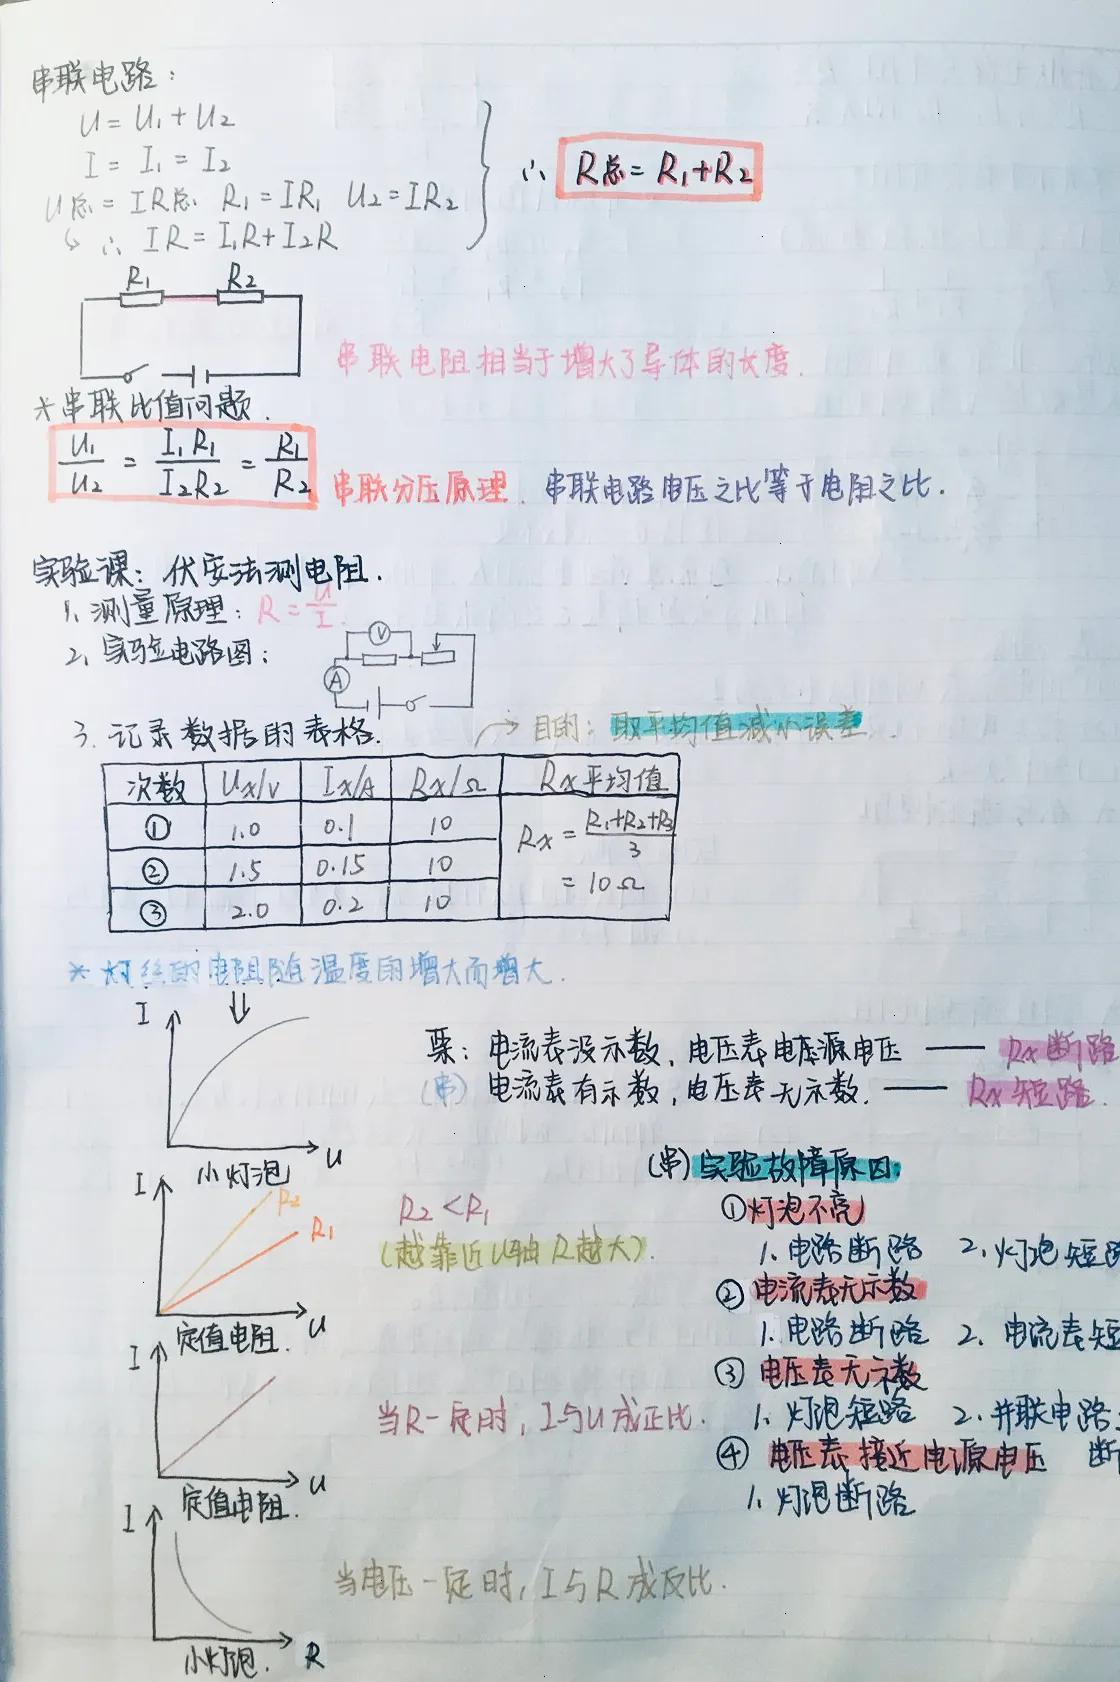 串联电路：
U = U₁ + U₂
I = I₁ = I₂
U总 = IR总 R₁ = IR₁ U₂ = IR₂
↳ ∴ IR = I₁R + I₂R
∴ R总 = R₁ + R₂
R₁ R₂
串联电阻相当于增大了导体的长度.
*串联比值问题.
U₁/U₂ = I₁R₁/I₂R₂ = R₁/R₂ 串联分压原理. 串联电路电压之比等于电阻之比.
实验课：伏安法测电阻.
1. 测量原理：R = U/I.
2. 实验电路图：
V
A
3. 记录数据的表格. → 目的：取平均值减小误差.
次数 Ux/V Ix/A Rx/Ω Rx平均值
① 1.0 0.1 10 Rx = R₁+R₂+R₃/3
② 1.5 0.15 10 = 10Ω
③ 2.0 0.2 10
*灯丝的电阻随温度的增大而增大.
I
U
小灯泡
：电流表没示数，电压表电压源电压 —— Rx断路
(串) 电流表有示数，电压表无示数. —— Rx短路.
I
R₂
R₁
U
定值电阻.
R₂ < R₁
(越靠近U轴R越大).
(串) 实验故障原因.
①灯泡不亮
1. 电路断路 2. 灯泡短
② 电流表无示数
1. 电路断路 2. 电流表短
③ 电压表无示数
1. 灯泡短路 2. 并联电路
断
④ 电压表接近电源电压
1. 灯泡断路
I
U
定值电阻.
当R一定时，I与U成正比.
I
R
小灯泡.
当电压一定时，I与R成反比.